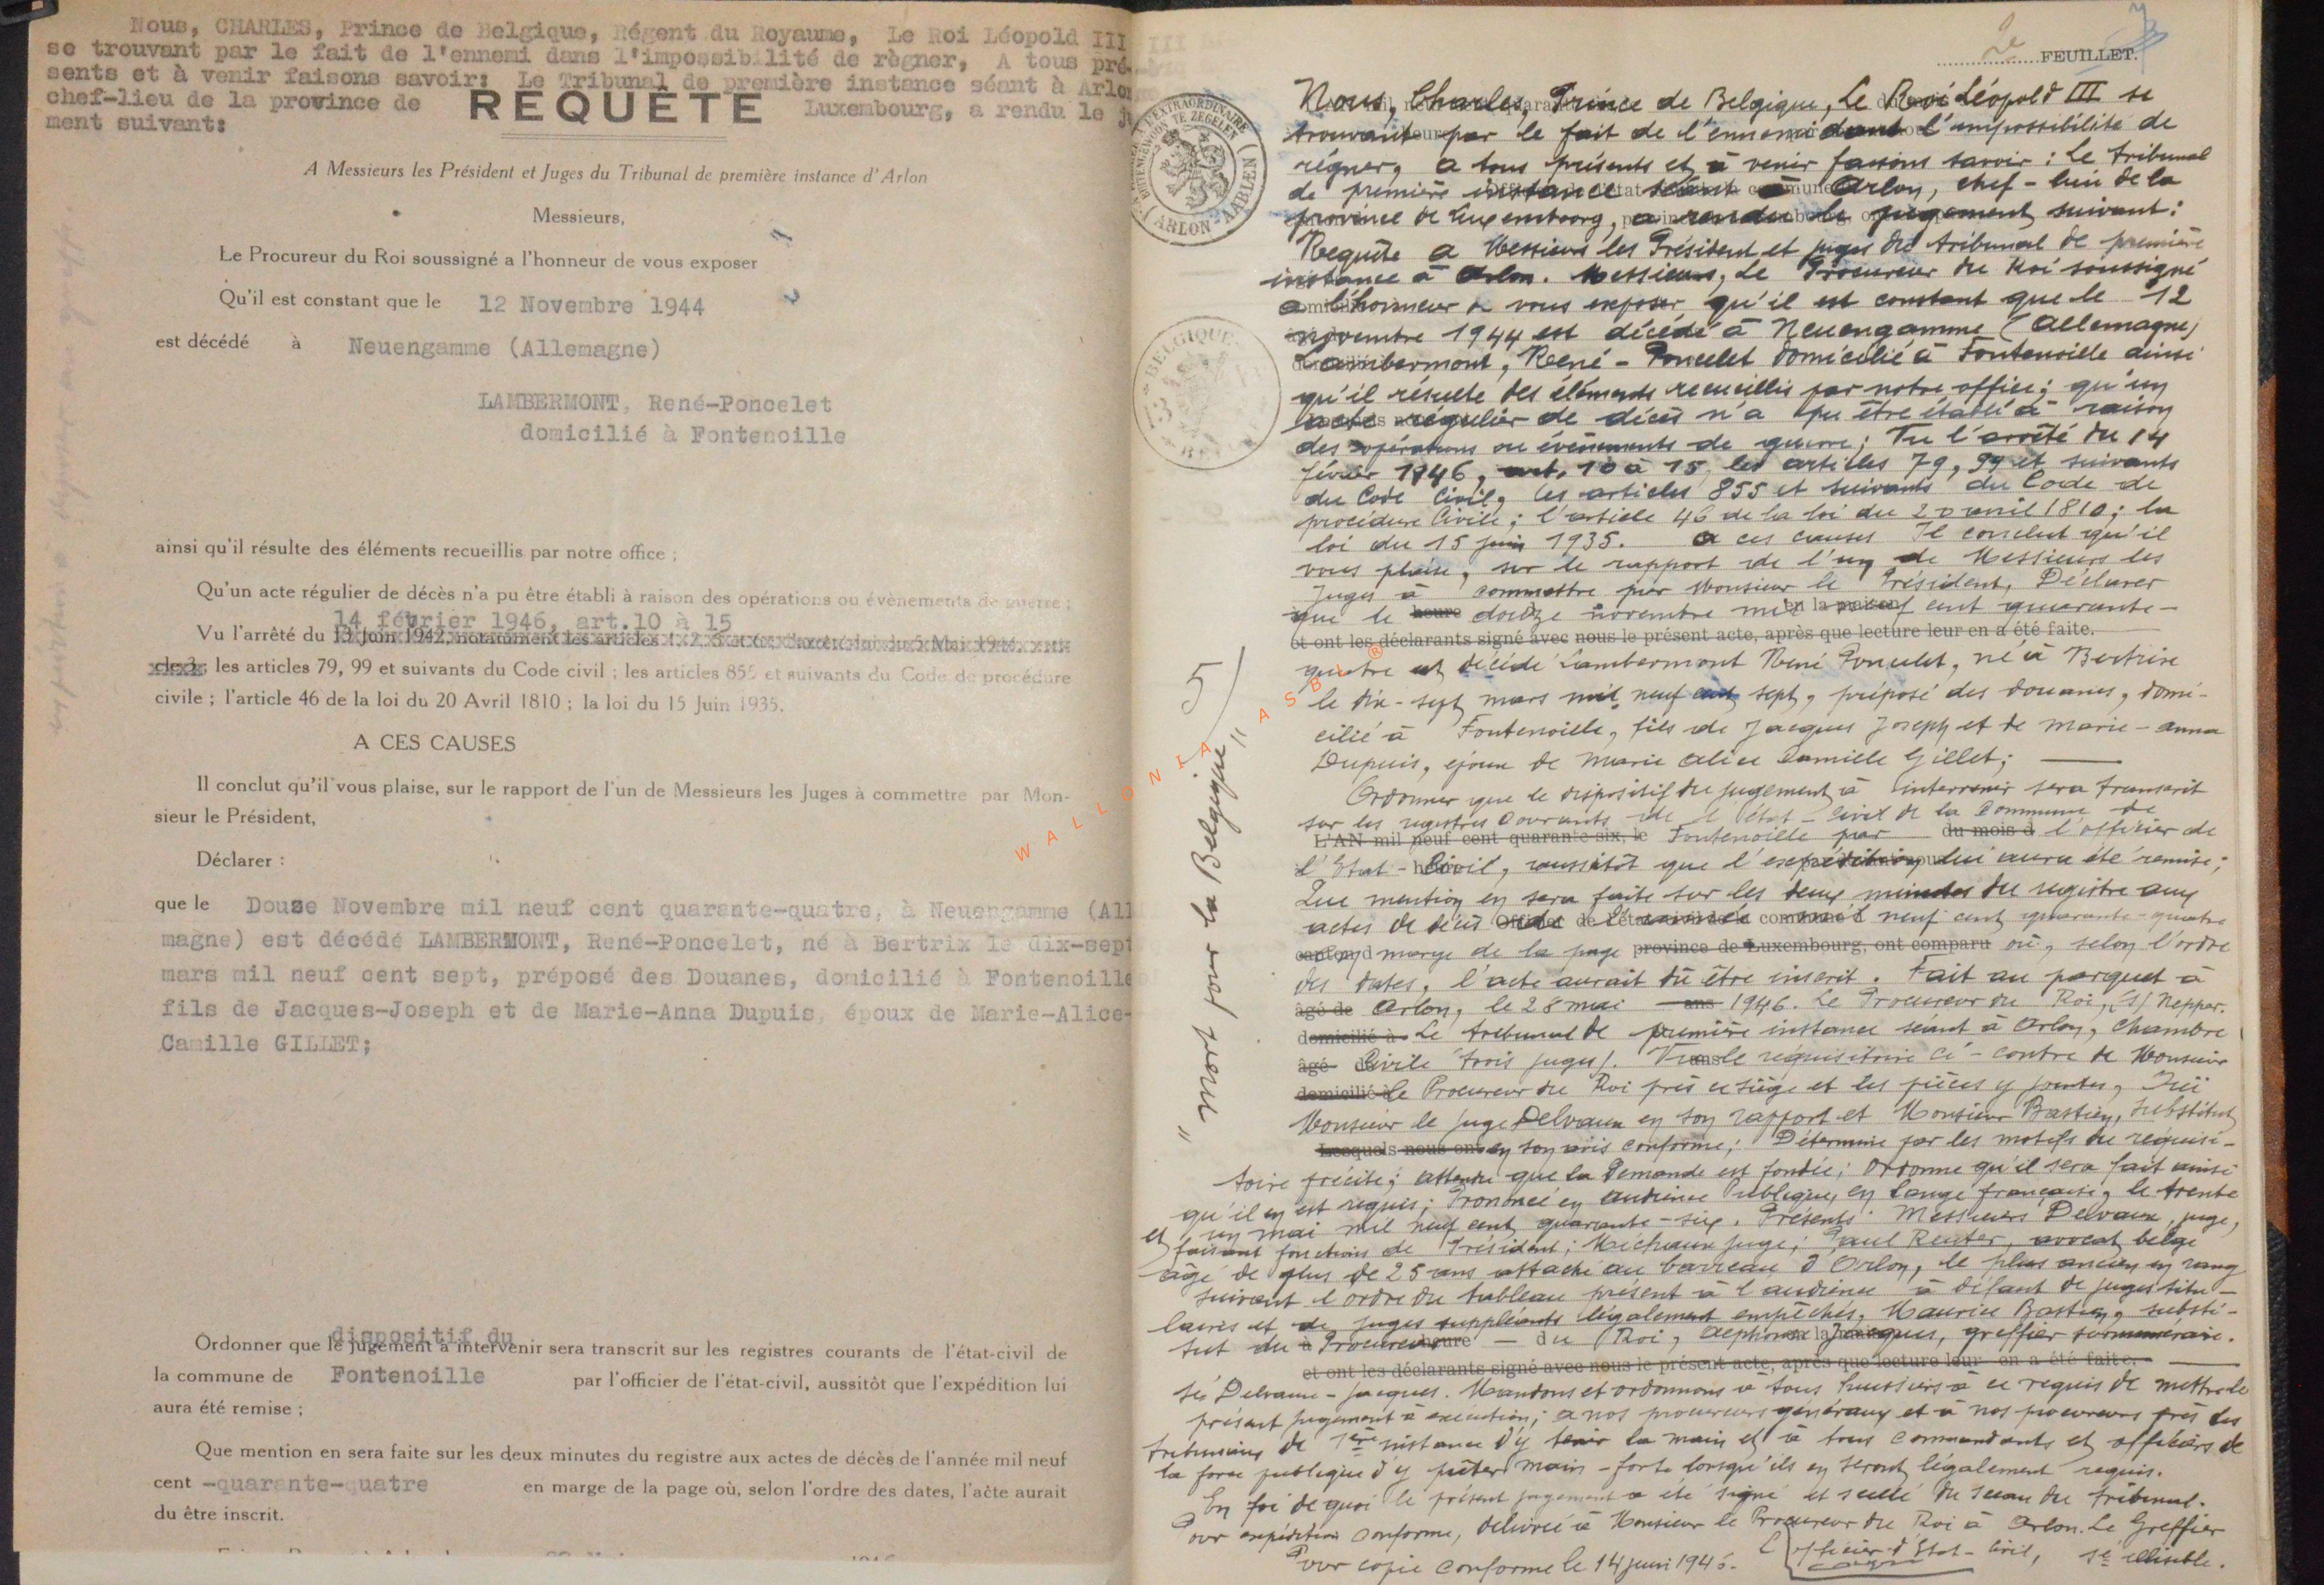 Nous, CHARLES, Prince de Belgique, Régent du Royaume, Le Roi Léopold III
se trouvant par le fait de l'ennemi dans l'impossibilité de règner, A tous pré-
sents et à venir faisons savoir: Le Tribunal de première instance séant à Arlon
chef-lieu de la province de REQUÊTE Luxembourg, a rendu le ju
ment suivant:
A Messieurs les Président et Juges du Tribunal de première instance d'Arlon
Messieurs,
Le Procureur du Roi soussigné a l'honneur de vous exposer
Qu'il est constant que le 12 Novembre 1944
est décédé à Neuengamme (Allemagne)
LAMBERMONT, René-Poncelet
domicilié à Fontenoille
ainsi qu'il résulte des éléments recueillis par notre office ;
Qu'un acte régulier de décès n'a pu être établi à raison des opérations ou évènements de guerre ;
14 février 1946, art.10 à 15
Vu l'arrêté du 13 juin 1942, notamment les articles
les articles 79, 99 et suivants du Code civil ; les articles 855 et suivants du Code de procédure
civile ; l'article 46 de la loi du 20 Avril 1810 ; la loi du 15 Juin 1935.
A CES CAUSES
Il conclut qu'il vous plaise, sur le rapport de l'un de Messieurs les Juges à commettre par Mon-
sieur le Président,
Déclarer :
que le Douze Novembre mil neuf cent quarante-quatre, à Neuengamme (All
magne) est décédé LAMBERMONT, René-Poncelet, né à Bertrix le dix-sept
mars mil neuf cent sept, préposé des Douanes, domicilié à Fontenoille
fils de Jacques-Joseph et de Marie-Anna Dupuis, époux de Marie-Alice-
Camille GILLET;
dispositif du
Ordonner que le jugement à intervenir sera transcrit sur les registres courants de l'état-civil de
la commune de Fontenoille par l'officier de l'état-civil, aussitôt que l'expédition lui
aura été remise ;
Que mention en sera faite sur les deux minutes du registre aux actes de décès de l'année mil neuf
cent -quarante-quatre en marge de la page où, selon l'ordre des dates, l'acte aurait
du être inscrit.
2e FEUILLET.
ARLON - AARLEN
BELGIQUE
Nous, Charles, Prince de Belgique, Le Roi Léopold III se
trouvant par le fait de l'ennemi dans l'impossibilité de
régner, a tous présents et à venir faisons savoir : Le tribunal
de première instance séant à Arlon, chef-lieu de la
province de Luxembourg, a rendu le jugement suivant :
Requête a Messieurs les Président et juges du tribunal de première
instance à Arlon. Messieurs, Le Procureur du Roi soussigné
a l'honneur de vous exposer qu'il est constant que le 12
novembre 1944 est décédé à Neuengamme (Allemagne)
Lambermont, René-Poncelet domicilié à Fontenoille ainsi
qu'il résulte des éléments recueillis par notre office ; qu'un
acte régulier de décès n'a pu être établi à raison
des opérations ou évènements de guerre ; Vu l'arrêté du 14
février 1946, art. 10 à 15, les articles 79, 99 et suivants
du Code Civil, les articles 855 et suivants du Code de
procédure Civile ; l'article 46 de la loi du 20 avril 1810 ; la
loi du 15 juin 1935. A ces causes Il conclut qu'il
vous plaise, sur le rapport de l'un de Messieurs les
Juges à commettre par Monsieur le Président, Déclarer
que le heure douze novembre mil en la maison neuf cent quarante-
et ont les déclarants signé avec nous le présent acte, après que lecture leur en a été faite.
quatre est décédé Lambermont René Poncelet, né à Bertrix
le dix-sept mars mil neuf cent sept, préposé des douanes, domi-
cilié à Fontenoille, fils de Jacques Joseph et de Marie-Anna
Dupuis, époux de Marie Alice Camille Gillet ;
Ordonner que le dispositif du jugement à intervenir sera transcrit
sur les registres courants de l'état-civil de la Commune de
L'AN mil neuf cent quarante-six, le Fontenoille par du mois d l'officier de
l'Etat-Civil, aussitôt que l'expédition lui aura été remise ;
Que mention en sera faite sur les deux minutes du registre aux
actes de décès de l'année mil neuf cent quarante-quatre
en marge de la page province de Luxembourg, ont comparu où, selon l'ordre
des dates, l'acte aurait dû être inscrit. Fait au parquet à
âgé de Arlon, le 28 mai ans 1946. Le Procureur du Roi, s/ Neppar.
domicilié à Le tribunal de première instance séant à Arlon, Chambre
âgé Civile trois juges). Vu le réquisitoire ci-contre de Monsieur
domicilié à le Procureur du Roi près ce siège et les pièces y jointes, Ouï
Monsieur le juge Delvaux en son rapport et Monsieur Bastien, substitut
Lesquels nous ont en son avis conforme ; Détermine par les motifs du réquisi-
toire précité ; attendu que la Demande est fondée ; Ordonne qu'il sera fait ainsi
qu'il en est requis ; Prononcé en audience publique, en langue française, le trente
et un mai mil neuf cent quarante-six. Présents : Messieurs Delvaux, juge,
faisant fonctions de Président ; Michaux juge ; Paul Reuter, avocat belge
âgé de plus de 25 ans attaché au barreau d'Arlon, le plus ancien en rang
suivant l'ordre du tableau présent à l'audience à défaut de juges titu-
laires et de juges suppléants légalement empêchés, Maurice Bastien, substi-
tut du Procureur du Roi, Alphonse Jacques, greffier surnuméraire.
et ont les déclarants signé avec nous le présent acte, après que lecture leur en a été faite.
sé Delvaux - Jacques. Mandons et ordonnons à tous huissiers à ce requis de mettre le
présent jugement à exécution ; a nos procureurs généraux et à nos procureurs près les
tribunaux de 1ère instance d'y tenir la main et à tous commandants et officiers de
la force publique d'y prêter main-forte lorsqu'ils en seront légalement requis.
En foi de quoi le présent jugement a été signé et scellé du sceau du tribunal.
Pour expédition conforme, délivrée à Monsieur le Procureur du Roi à Arlon. Le Greffier
Pour copie conforme le 14 juin 1946. L'officier d'Etat-Civil, sé illisible.
"Mort pour la Belgique"
5
WALLONIA ASBL ®